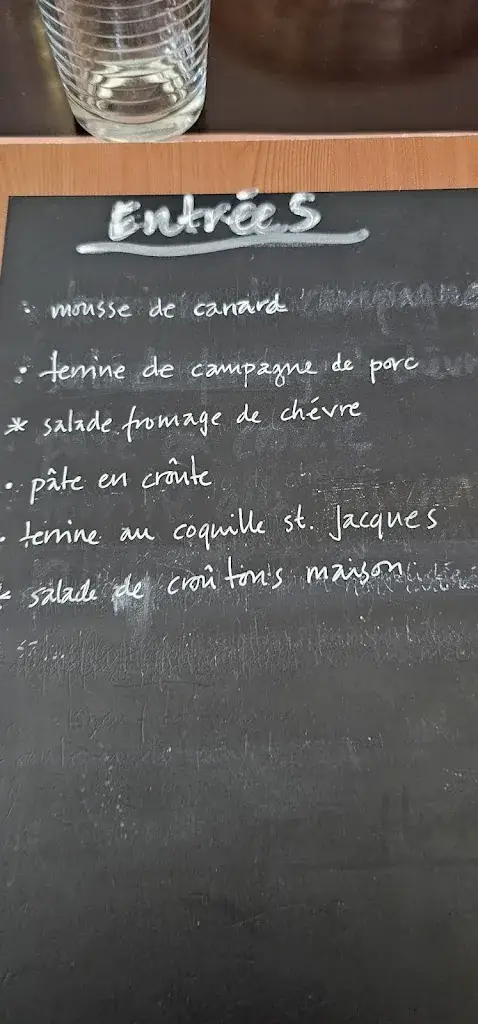 Entrées
: mousse de canard
• terrine de campagne de porc
* salade fromage de chévre
• pâte en croûte
• terrine au coquille st. Jacques
* salade de croûtons maison